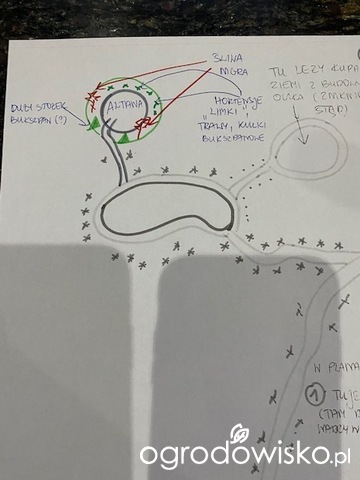 3LINA
NIGRA
ALTANA
DUŻY STOŻEK
BUKSZPAN (?)
HORTENSJE
LIMKI
TRAWY, KULKI
BUKSZPANOWE
TU LEŻY KUPA
ZIEMI Z BUDOW
OCZKA (ZNIKNIE
STĄD)
W PLANA
① TUJE
(TAM
WARZYW
ogrodowisko.pl